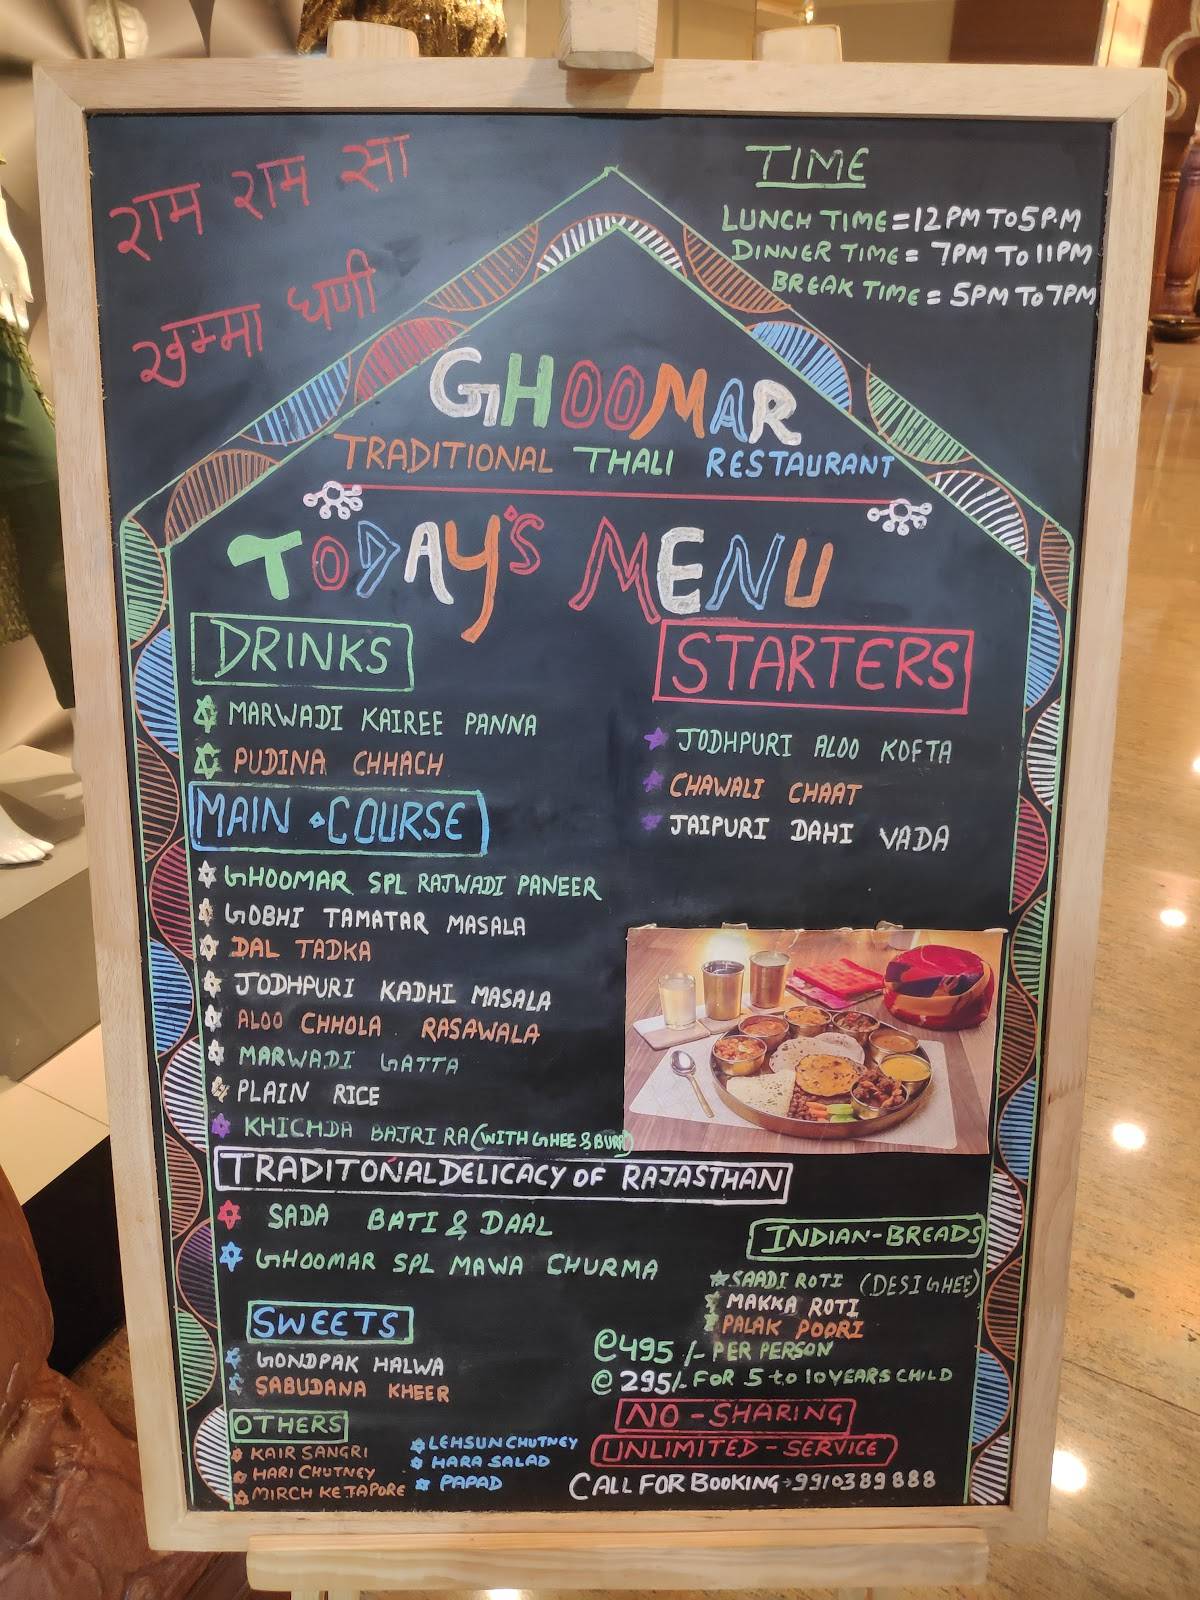 राम राम सा
खम्मा घणी
TIME
LUNCH TIME = 12 PM TO 5 P.M
DINNER TIME = 7PM TO 11PM
BREAK TIME = 5PM TO 7PM
GHOOMAR
TRADITIONAL THALI RESTAURANT
TODAY'S MENU
DRINKS
MARWADI KAIREE PANNA
PUDINA CHHACH
STARTERS
JODHPURI ALOO KOFTA
CHAWALI CHAAT
JAIPURI DAHI VADA
MAIN COURSE
GHOOMAR SPL RAJWADI PANEER
GOBHI TAMATAR MASALA
DAL TADKA
JODHPURI KADHI MASALA
ALOO CHHOLA RASAWALA
MARWADI GATTA
PLAIN RICE
KHICHDA BAJRI RA (WITH GHEE & BURA)
TRADITONAL DELICACY OF RAJASTHAN
SADA BATI & DAAL
GHOOMAR SPL MAWA CHURMA
INDIAN-BREADS
SAADI ROTI (DESI GHEE)
MAKKA ROTI
PALAK POORI
SWEETS
GONDPAK HALWA
SABUDANA KHEER
@495/- PER PERSON
@ 295/- FOR 5 to 10 YEARS CHILD
NO-SHARING
UNLIMITED-SERVICE
CALL FOR BOOKING → 9910389888
OTHERS
KAIR SANGRI
HARI CHUTNEY
MIRCH KE TAPORE
LEHSUN CHUTNEY
HARA SALAD
PAPAD